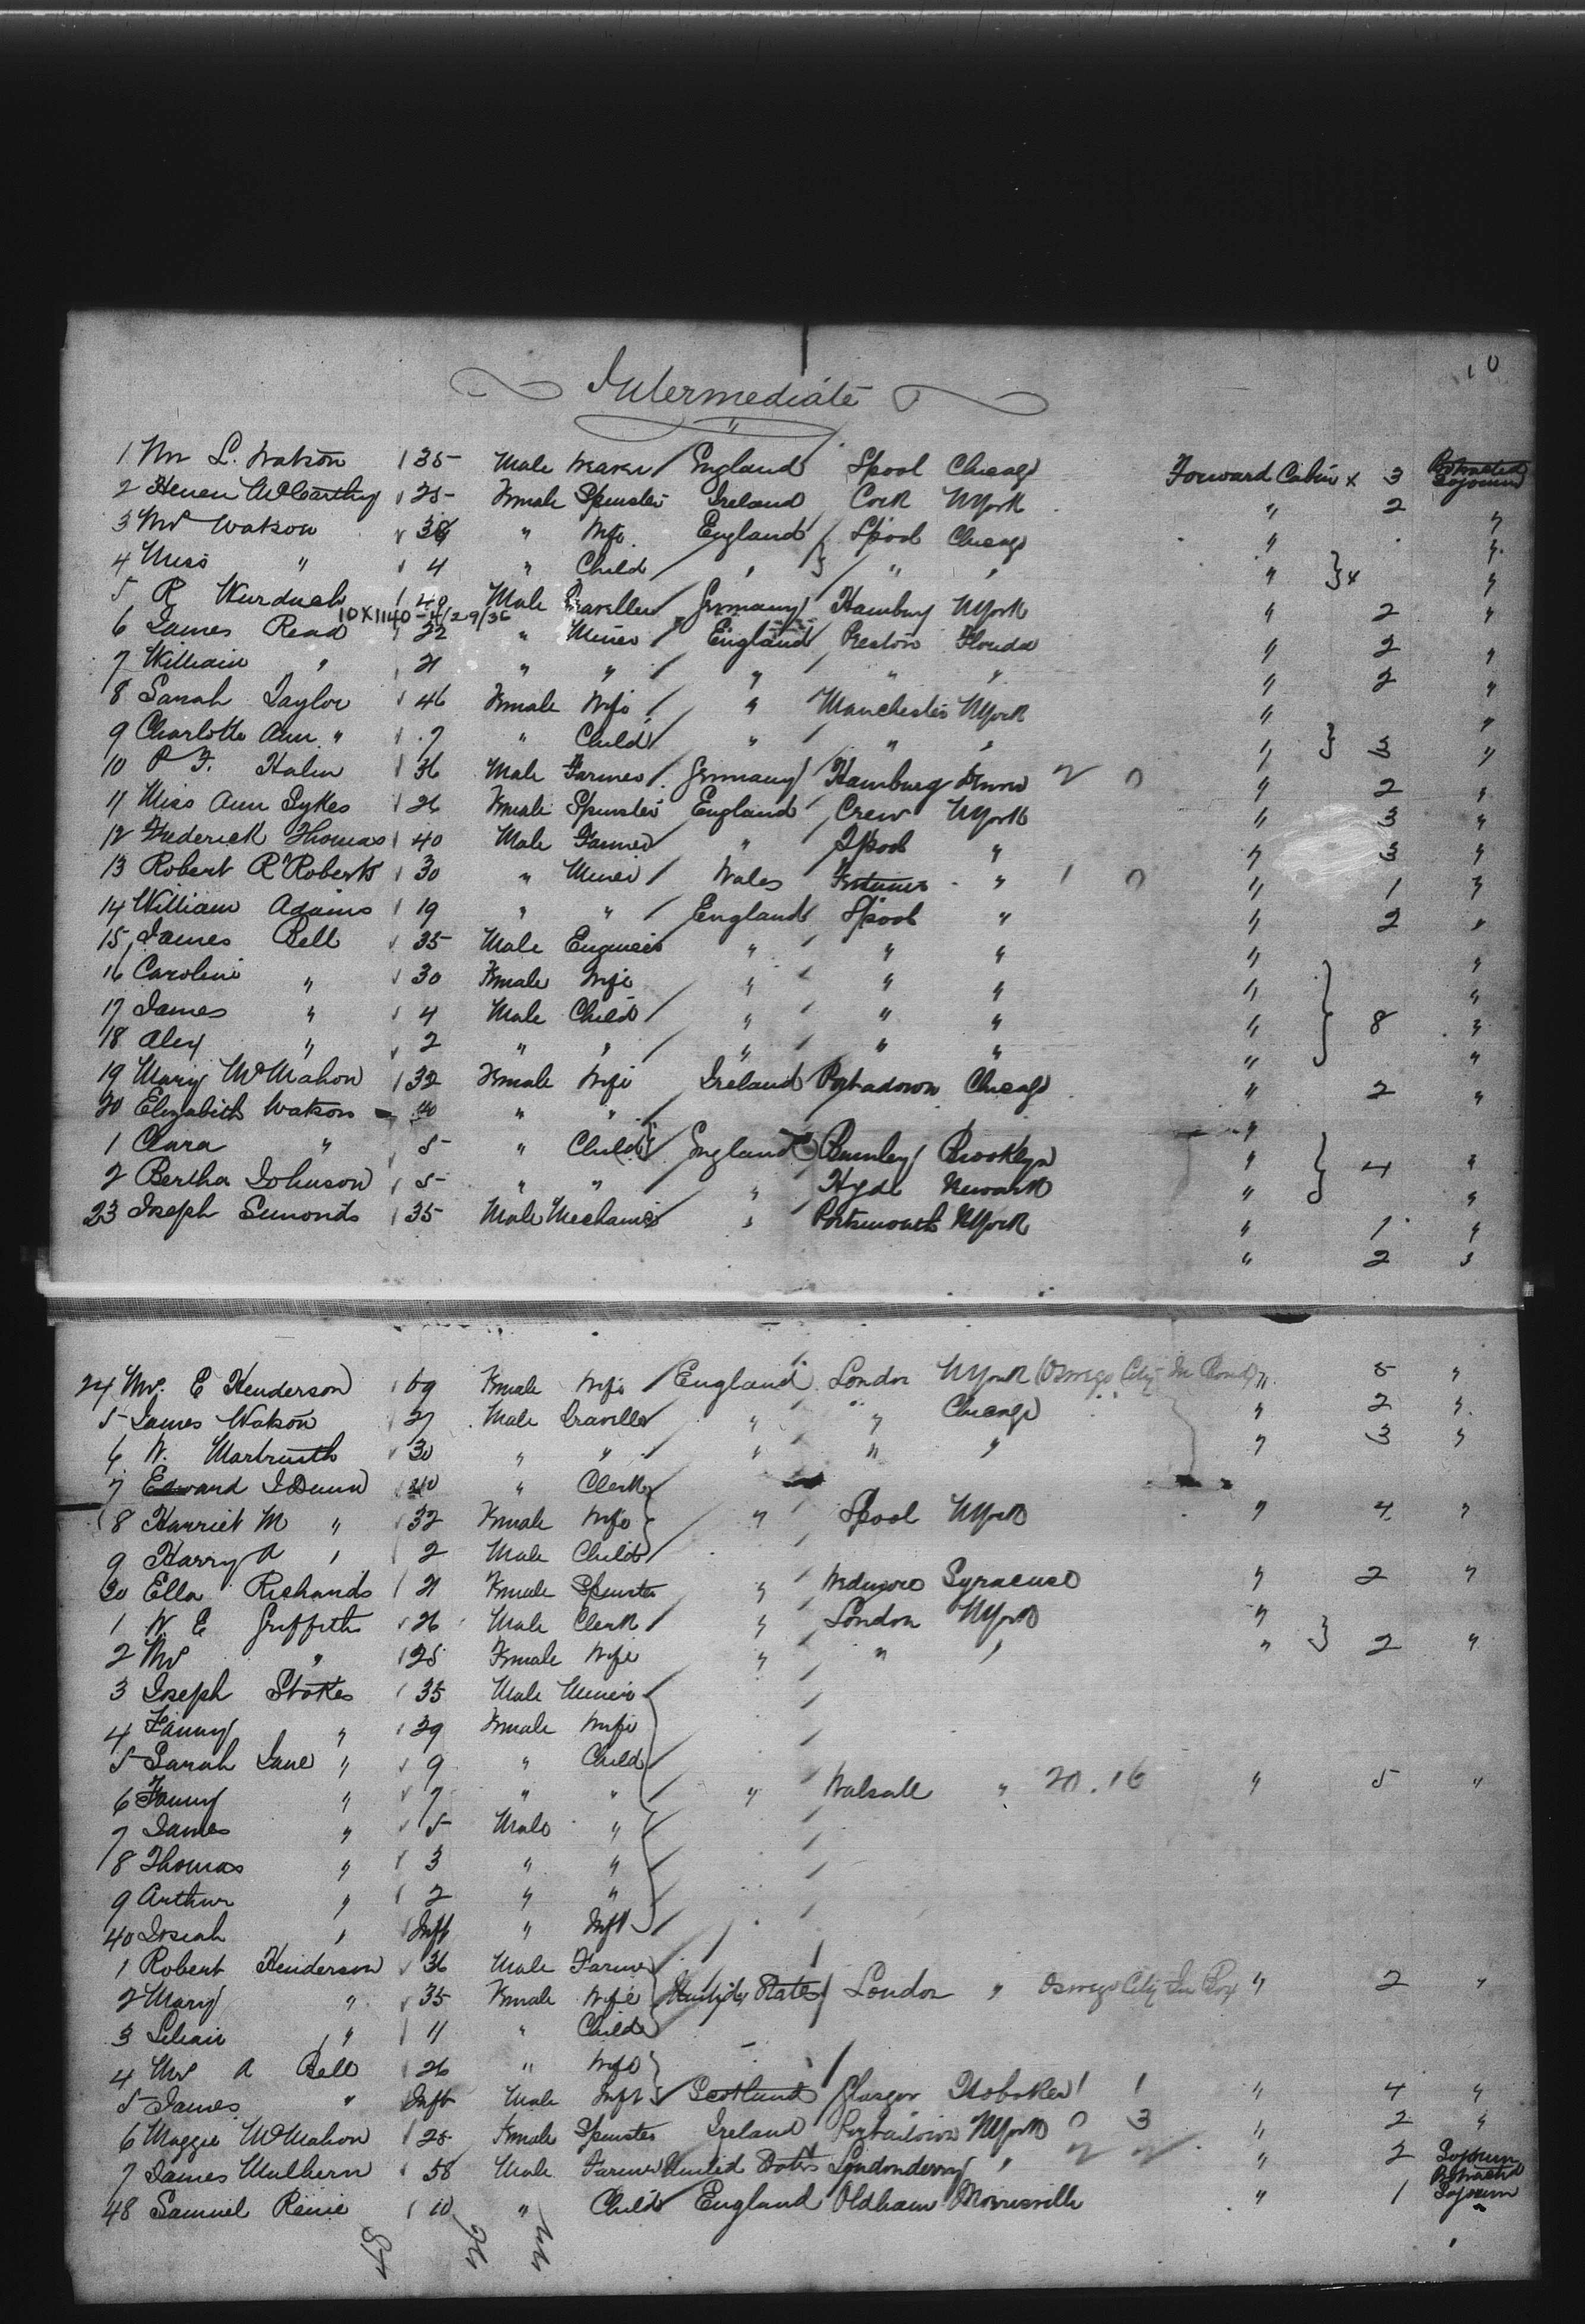 10
Intermediate
1 Wm L. Watson 35 Male Weaver England Lpool Chicago Forward Cabin x 3 Protracted Sojourn
2 McCarthy 25 Female Spinster Ireland Cork NYork " 2 "
3 Mrs Watson " Wife England } Lpool Chicago " "
4 Miss " 4 " Child " } " " " } 4 "
5 R 40 Male Traveller Germany Hamburg NYork " 2 "
10X1140-4/29/36
6 James Read 22 " Miner England Preston Florida " 2 "
7 William " 21 " " " " " " 2 "
8 Sarah Taylor 46 Female Wife " Manchester NYork " "
9 Charlotte Ann " 7 " Child " " " " } 3 "
10 P F. Hahn 36 Male Farmer Germany Hamburg 2 0 " 2 "
11 Miss Ann Sykes 26 Female Spinster England Crew NYork " 3 "
12 Frederick Thomas 40 Male Farmer " Lpool " " 3 "
13 Robert R Roberts 30 " Miner Wales " 1 0 " 1 "
14 William Adams 19 " " England Lpool " " 2 "
15 James Bell 35 Male Engineer " " " " "
16 Caroline " 30 Female Wife " " " " "
17 James " 4 Male Child " " " " } 8 "
18 Alex " 2 " " " " " " "
19 Mary McMahon 32 Female Wife Ireland Portadown Chicago " 2 "
20 Elizabeth Watson 40 " " "
1 Clara " 5 " Child } England Burnley Brooklyn " } 4 "
2 Bertha Johnson 5 " " " Hyde Newark " "
23 Joseph Simonds 35 Male Mechanic " Portsmouth NYork " 1 "
" 2 "
24 Mrs. E Henderson 69 Female Wife England London NYork (Oswego City In Bond) " 5 "
5 James Watson 27 Male Traveller " " Chicago " 2 "
6 W. 30 " " " " " " 3 "
7 Edward J Dunn 40 " Clerk
8 Harriet M " 32 Female Wife " Lpool NYork " 4 "
9 Harry A " 2 Male Child
30 Ella Richards 21 Female Spinster " Syracuse " 2 "
1 W E Griffiths 26 Male Clerk " London NYork "
2 Mrs " 25 Female Wife " " " " } 2 "
3 Joseph Stokes 35 Male Miner
4 Fanny " 29 Female Wife
5 Sarah Jane " 9 " Child
6 Fanny " 7 " " " Walsall " 20.16 " 5 "
7 James " 5 Male "
8 Thomas " 3 " "
9 Arthur " 2 " "
40 Josiah " Inft " Inft
1 Robert Henderson 36 Male Farmer
2 Mary " 35 Female Wife United States London " Oswego City In " 2 "
3 Lilian " 11 " Child
4 Mrs A Bell 26 " Wife
5 James " Inft Male Inft Scotland Glasgow Hoboken 1 1 " 4 "
6 Maggie McMahon 25 Female Spinster Ireland Portadown NYork 0 3 " 2 "
7 James Mulhern 58 Male Farmer United States Londonderry " 2 2 " 2 Sojourn
48 Samuel 10 " Child England Oldham Morrisville " 1 Protracted Sojourn